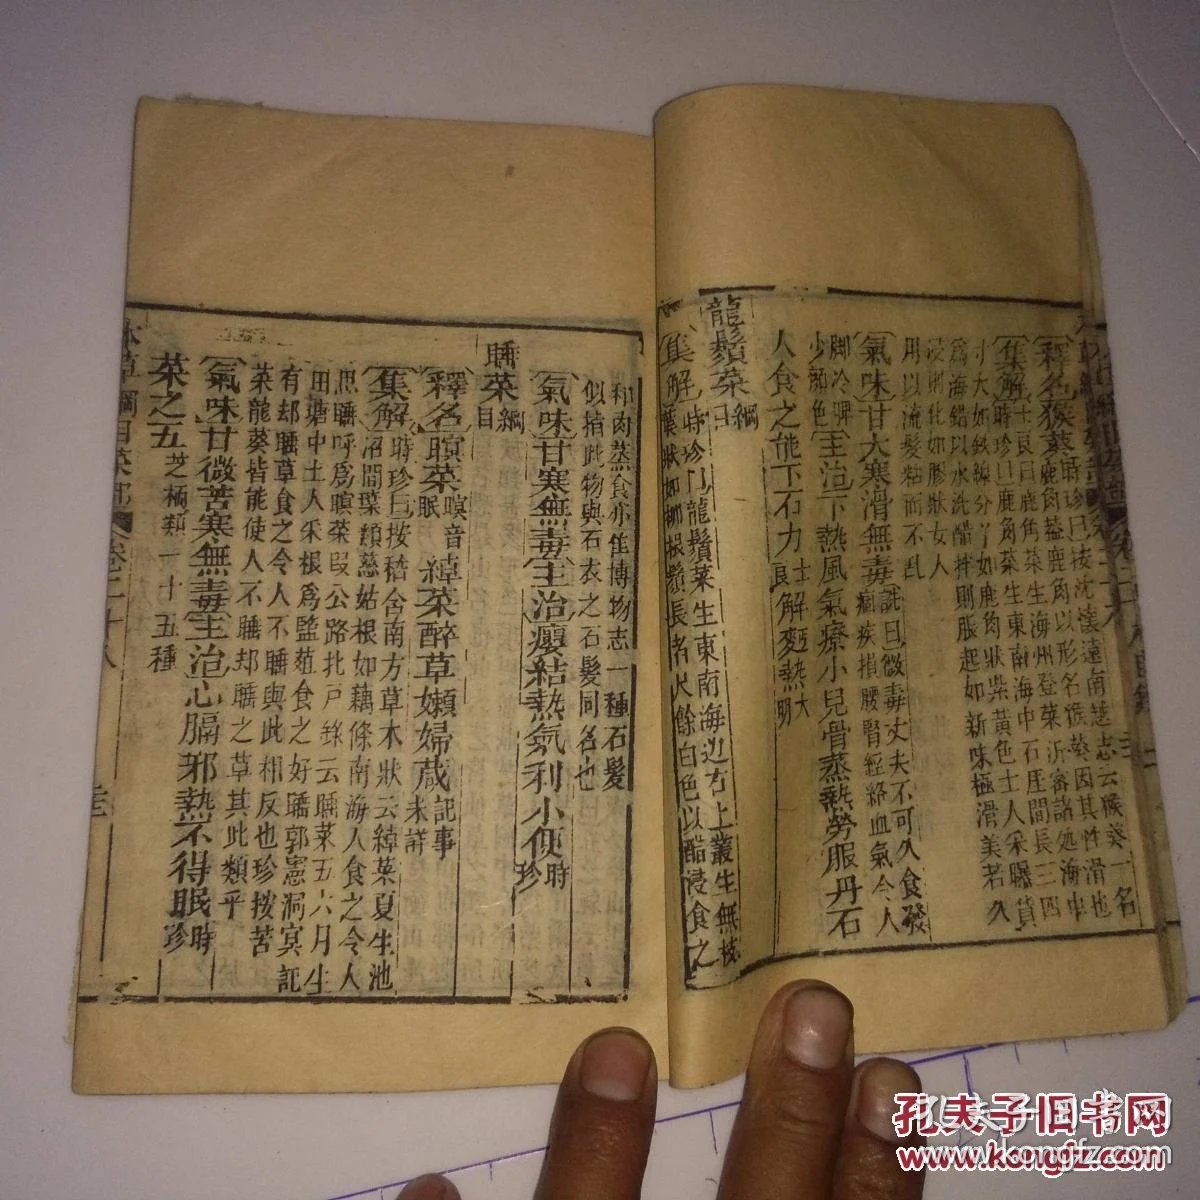 釋名猴葵時珍曰按沈懷遠南越志云猴葵一名
鹿角蓋鹿角以形名猴葵因其性滑也
集解士良曰鹿角菜生海州登萊沂審諸処海中
時珍曰鹿角菜生東南海中石厓間長三四
寸大如鉄線分丫如鹿角狀柴黃色士人采曝貨
為海錯以水洗醋拌則脹起如新味極滑美若久
浸則化如膠狀女人
用以流髮粘而不乱
氣味甘大寒滑無毒詵曰微毒丈夫不可久食發
痼疾損腰腎經絡血氣令人
脚冷痺
少顏色
主治下熱風氣療小兒骨蒸熱勞服丹石
人食之能下石力士良
解麵熱大明
龍鬚菜綱目
集解時珍曰龍鬚菜生東南海边石上叢生無枝
葉狀如柳根鬚長者尺餘白色以醋浸食之
和肉蒸食亦佳博物志一種石髮
似指此物與石衣之石髮同名也
氣味甘寒無毒主治癭結熱氣利小便時珍
睡菜綱目
釋名瞑菜瞑音眠
綽菜醉草嬾婦葴記事
未詳
集解時珍曰按嵇含南方草木狀云綽菜夏生池
沼間葉類慈姑根如藕條南海人食之令人
思睡呼爲瞑菜叚公路北戶錄云睡菜五六月生
用塘中土人采根爲監菹食之好睡郭憲洞冥記
有却睡草食之令人不睡與此相反也珍按苦
菜龍葵皆能使人不睡却睡之草其此類乎
氣味甘微苦寒無毒主治心膈邪熱不得眠時珍
菜之五芝栭類一十五種
本草綱目菜部
卷二十八
孔夫子旧书网
www.kongfz.com